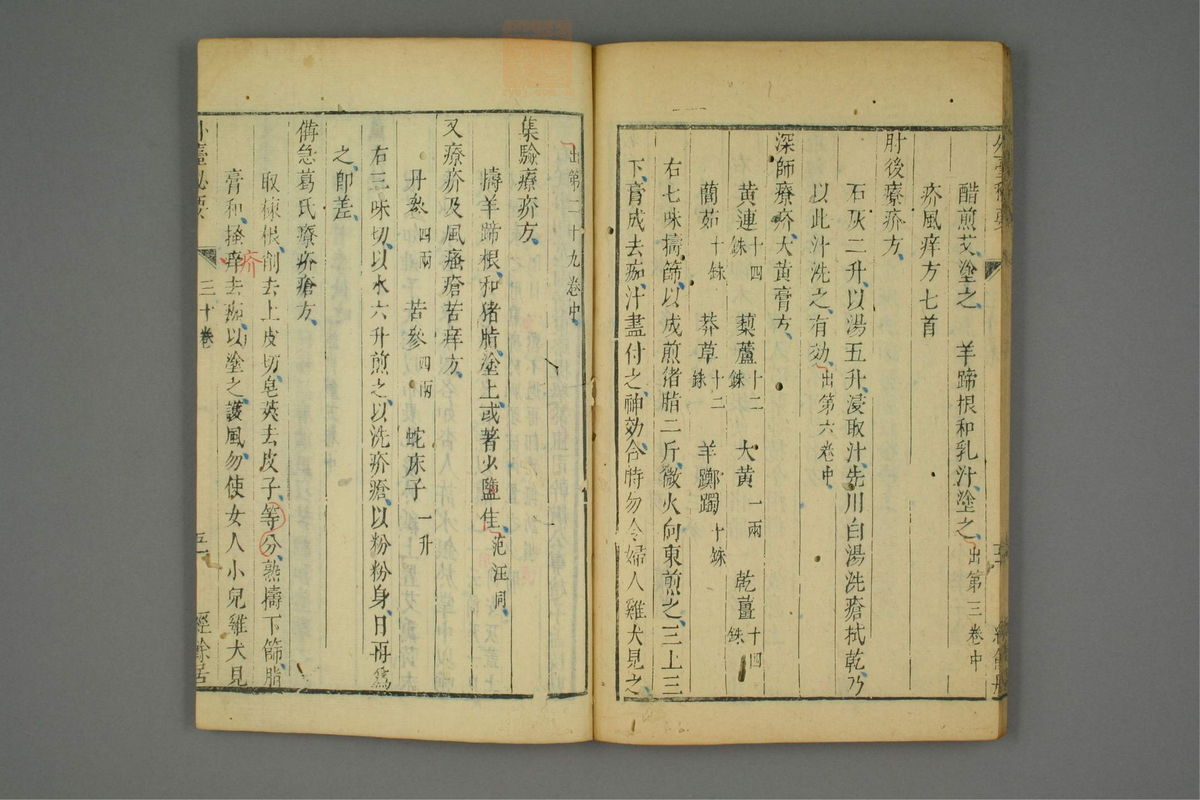 醋煎艾塗之　羊蹄根和乳汁塗之出第三卷中
疥風痒方七首
肘後療疥方
石灰二升以湯五升浸取汁先用白湯洗瘡拭乾乃
以此汁洗之有効出第六卷中
深師療疥大黃膏方
黃連十四銖　藜蘆十二銖　大黃一兩　乾薑十四銖
藺茹十銖　莽草十二銖　羊躑躅十銖
右七味擣篩以成煎猪脂二斤微火向東煎之三上三
下膏成去痂汁盡付之神効合時勿令婦人雞犬見之
出第二十九卷中
集驗療疥方
擣羊蹄根和猪脂塗上或著少鹽佳范汪同
又療疥及風瘙瘡苦痒方
丹參四兩　苦參四兩　蛇床子一升
右三味切以水六升煎之以洗疥瘡以粉粉身日再爲
之卽差
備急葛氏療疥瘡方
取楝根削去上皮切皂莢去皮子等分熟擣下篩脂
膏和搔痒去痂以塗之護風勿使女人小兒雞犬見
疥
外臺秘要　三十卷　五　經餘居